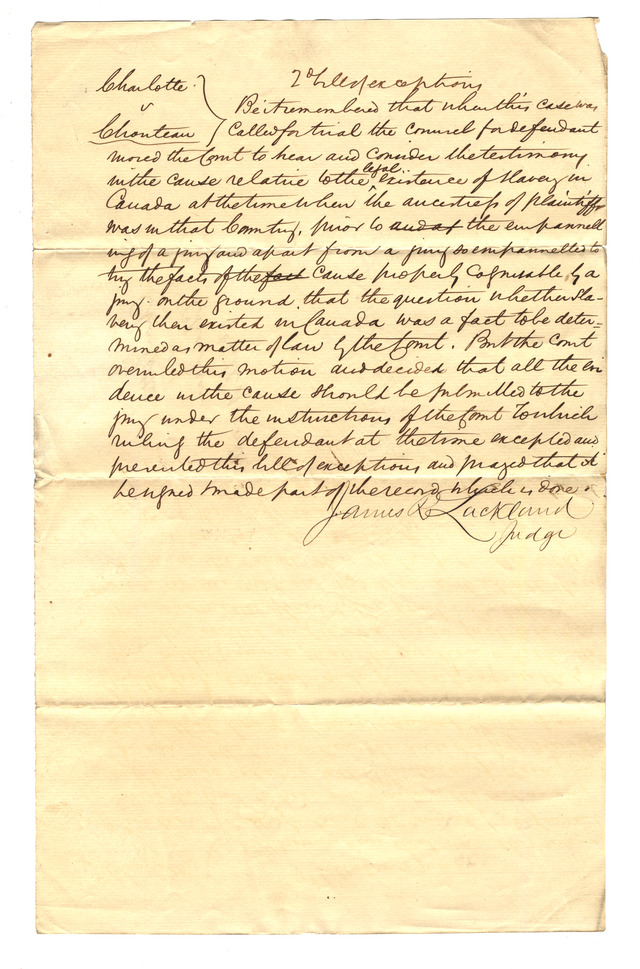 Charlotte
v
Chouteau
2d bill of exceptions
Be it remembered that when this case was
called for trial the counsel for defendant
moved the Court to hear and consider the testimony
in the cause relative to the legal existence of slavery in
Canada at the time when the ancestress of plaintiff
was in that Country, prior to and at the empannell
ing of a jury and apart from a jury so empannelled to
try the facts of the fact cause properly cognisable by a
jury on the ground that the question whether sla-
very then existed in Canada was a fact to be deter-
mined as matter of law by the Court. But the Court
overruled this motion and decided that all the evi
dence in the cause should be submitted to the
jury under the instructions of the Court to which
ruling the defendant at the time excepted and
presented this bill of exceptions and prayed that it
be signed & made part of the record which is done
James R Lackland
Judge